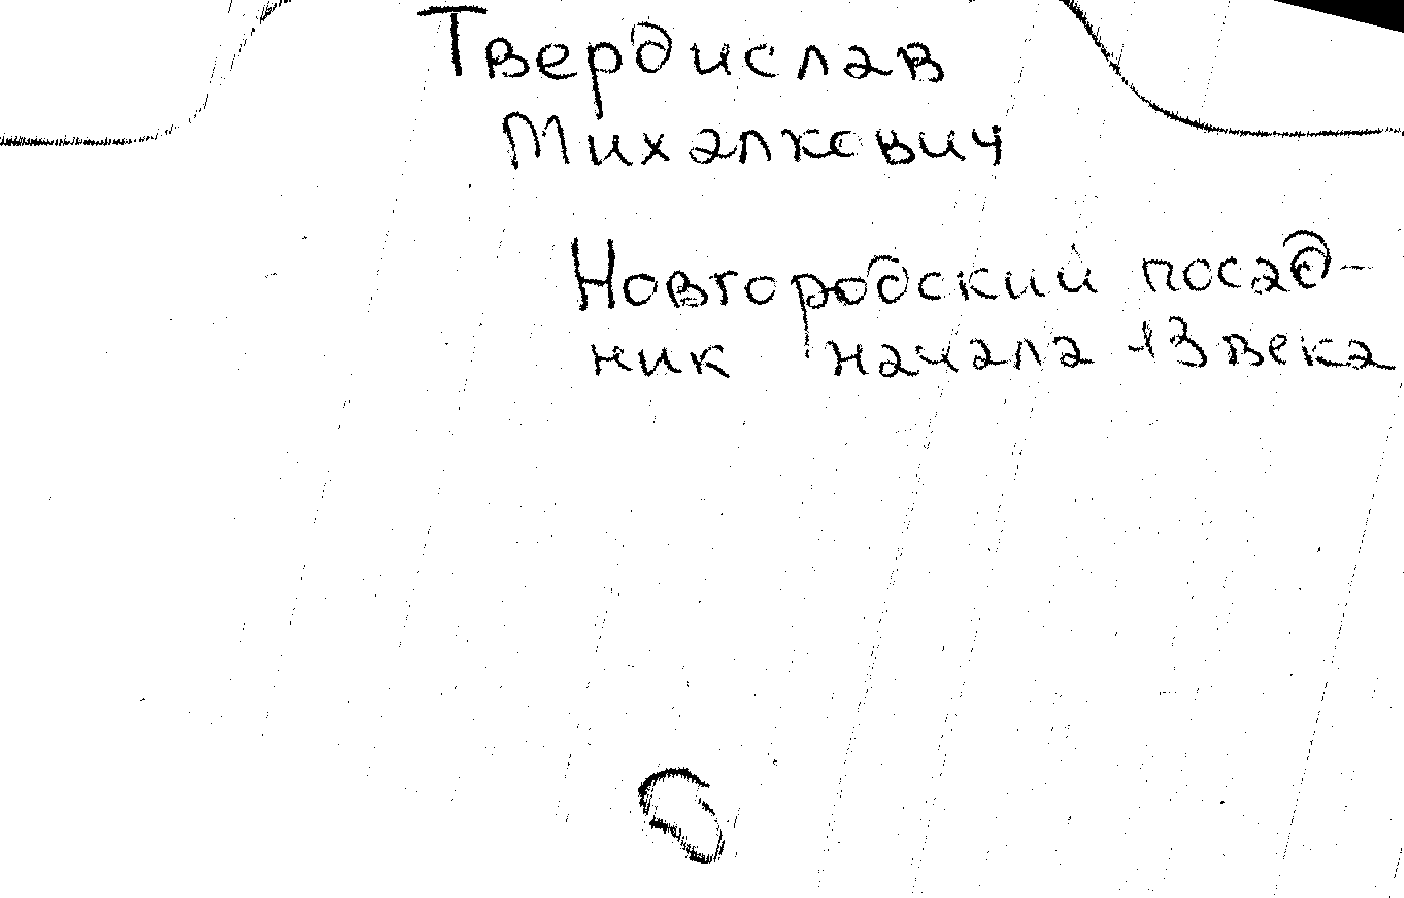 Твердислав
Михалкович
Новгородский посад-
ник начала 13 века